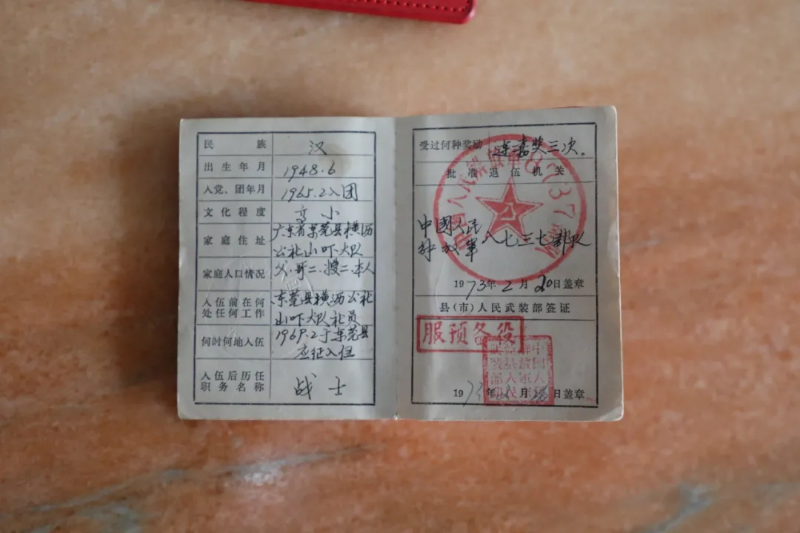 民 族 汉
出生年月 1948.6
入党、团年月 1965.2入团
文化程度 高小
家庭住址 广东省东莞县横沥
公社山吓大队
家庭人口情况 父.哥二.嫂二.本人
入伍前在何 东莞县横沥公社
处任何工作 山吓大队社员
何时何地入伍 1969.2于东莞县
应征入伍
入伍后历任
职务名称 战士
受过何种奖励 连嘉奖三次.
批准退伍机关
中國人民
解放军八七三七部队
1973年2月20日盖章
县(市)人民武装部签证
服预备役
1973年 月 日盖章